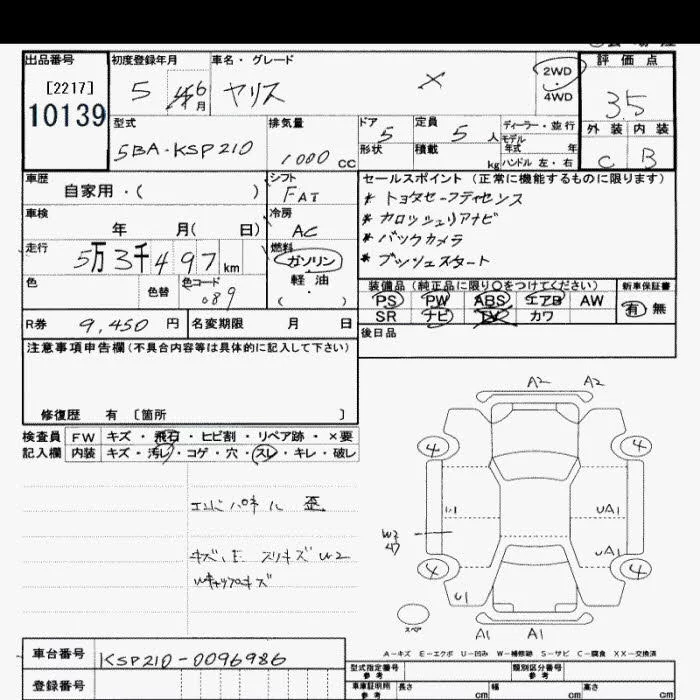 出品番号
[2217]
10139
初度登録年月
5 6月
車名・グレード
ヤリス X
2WD
4WD
評価点
3.5
外装 内装
C B
型式
5BA-KSP210
排気量
1000 CC
ドア
5
形状
定員
5人
積載
kg
ディーラー・並行
モデル年式 年
ハンドル 左・右
車歴
自家用・( )
シフト
FAT
車検
年 月( 日)
冷房
AC
走行
5万3千497km
燃料
ガソリン
軽油
( )
色
色替
色コード
089
R券
9,450円
名変期限 月 日
セールスポイント (正常に機能するものに限ります)
* トヨタセーフティセンス
* カロッツェリアナビ
* バックカメラ
* プッシュスタート
装備品(純正品に限り○をつけてください)
PS PW ABS エアB AW
SR ナビ TV カワ
新車保証書
有 無
後日品
注意事項申告欄(不具合内容等は具体的に記入して下さい)
修復歴 有 〔箇所 〕
検査員記入欄
FW キズ・飛石・ヒビ割・リペア跡・×要
内装 キズ・汚レ・コゲ・穴・スレ・キレ・破レ
エンドパネル 歪
キズ、E スリキズ W2
A2 A2
4 4
UA1
W2
UA1
4 4
U1
スペア
A1 A1
A-キズ E-エクボ U-凹み W-補修跡 S-サビ C-腐食 XX-交換済
車台番号
KSP210-0096986
登録番号
型式指定番号 参考
類別区分番号 参考
車庫証明用 参考
長さ cm
幅 cm
高さ cm